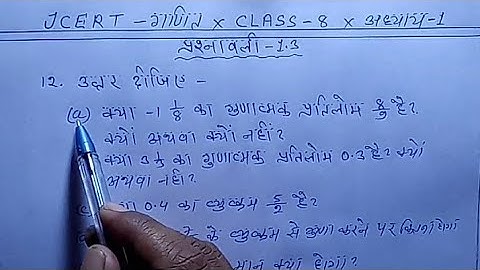 JCERT - गणित x CLASS - 8 x अध्याय-1
प्रश्नावली-1.3
12. उत्तर दीजिए -
(a) क्या -1 1/8 का गुणात्मक प्रतिलोम 8/9 है?
क्यों अथवा क्यों नहीं?
क्या 3 1/3 का गुणात्मक प्रतिलोम 0.3 है? क्यों
अथवा नहीं?
0.4 का व्युत्क्रम 5/2 है?
के व्युत्क्रम से गुणा करने पर
मान क्या होगा?